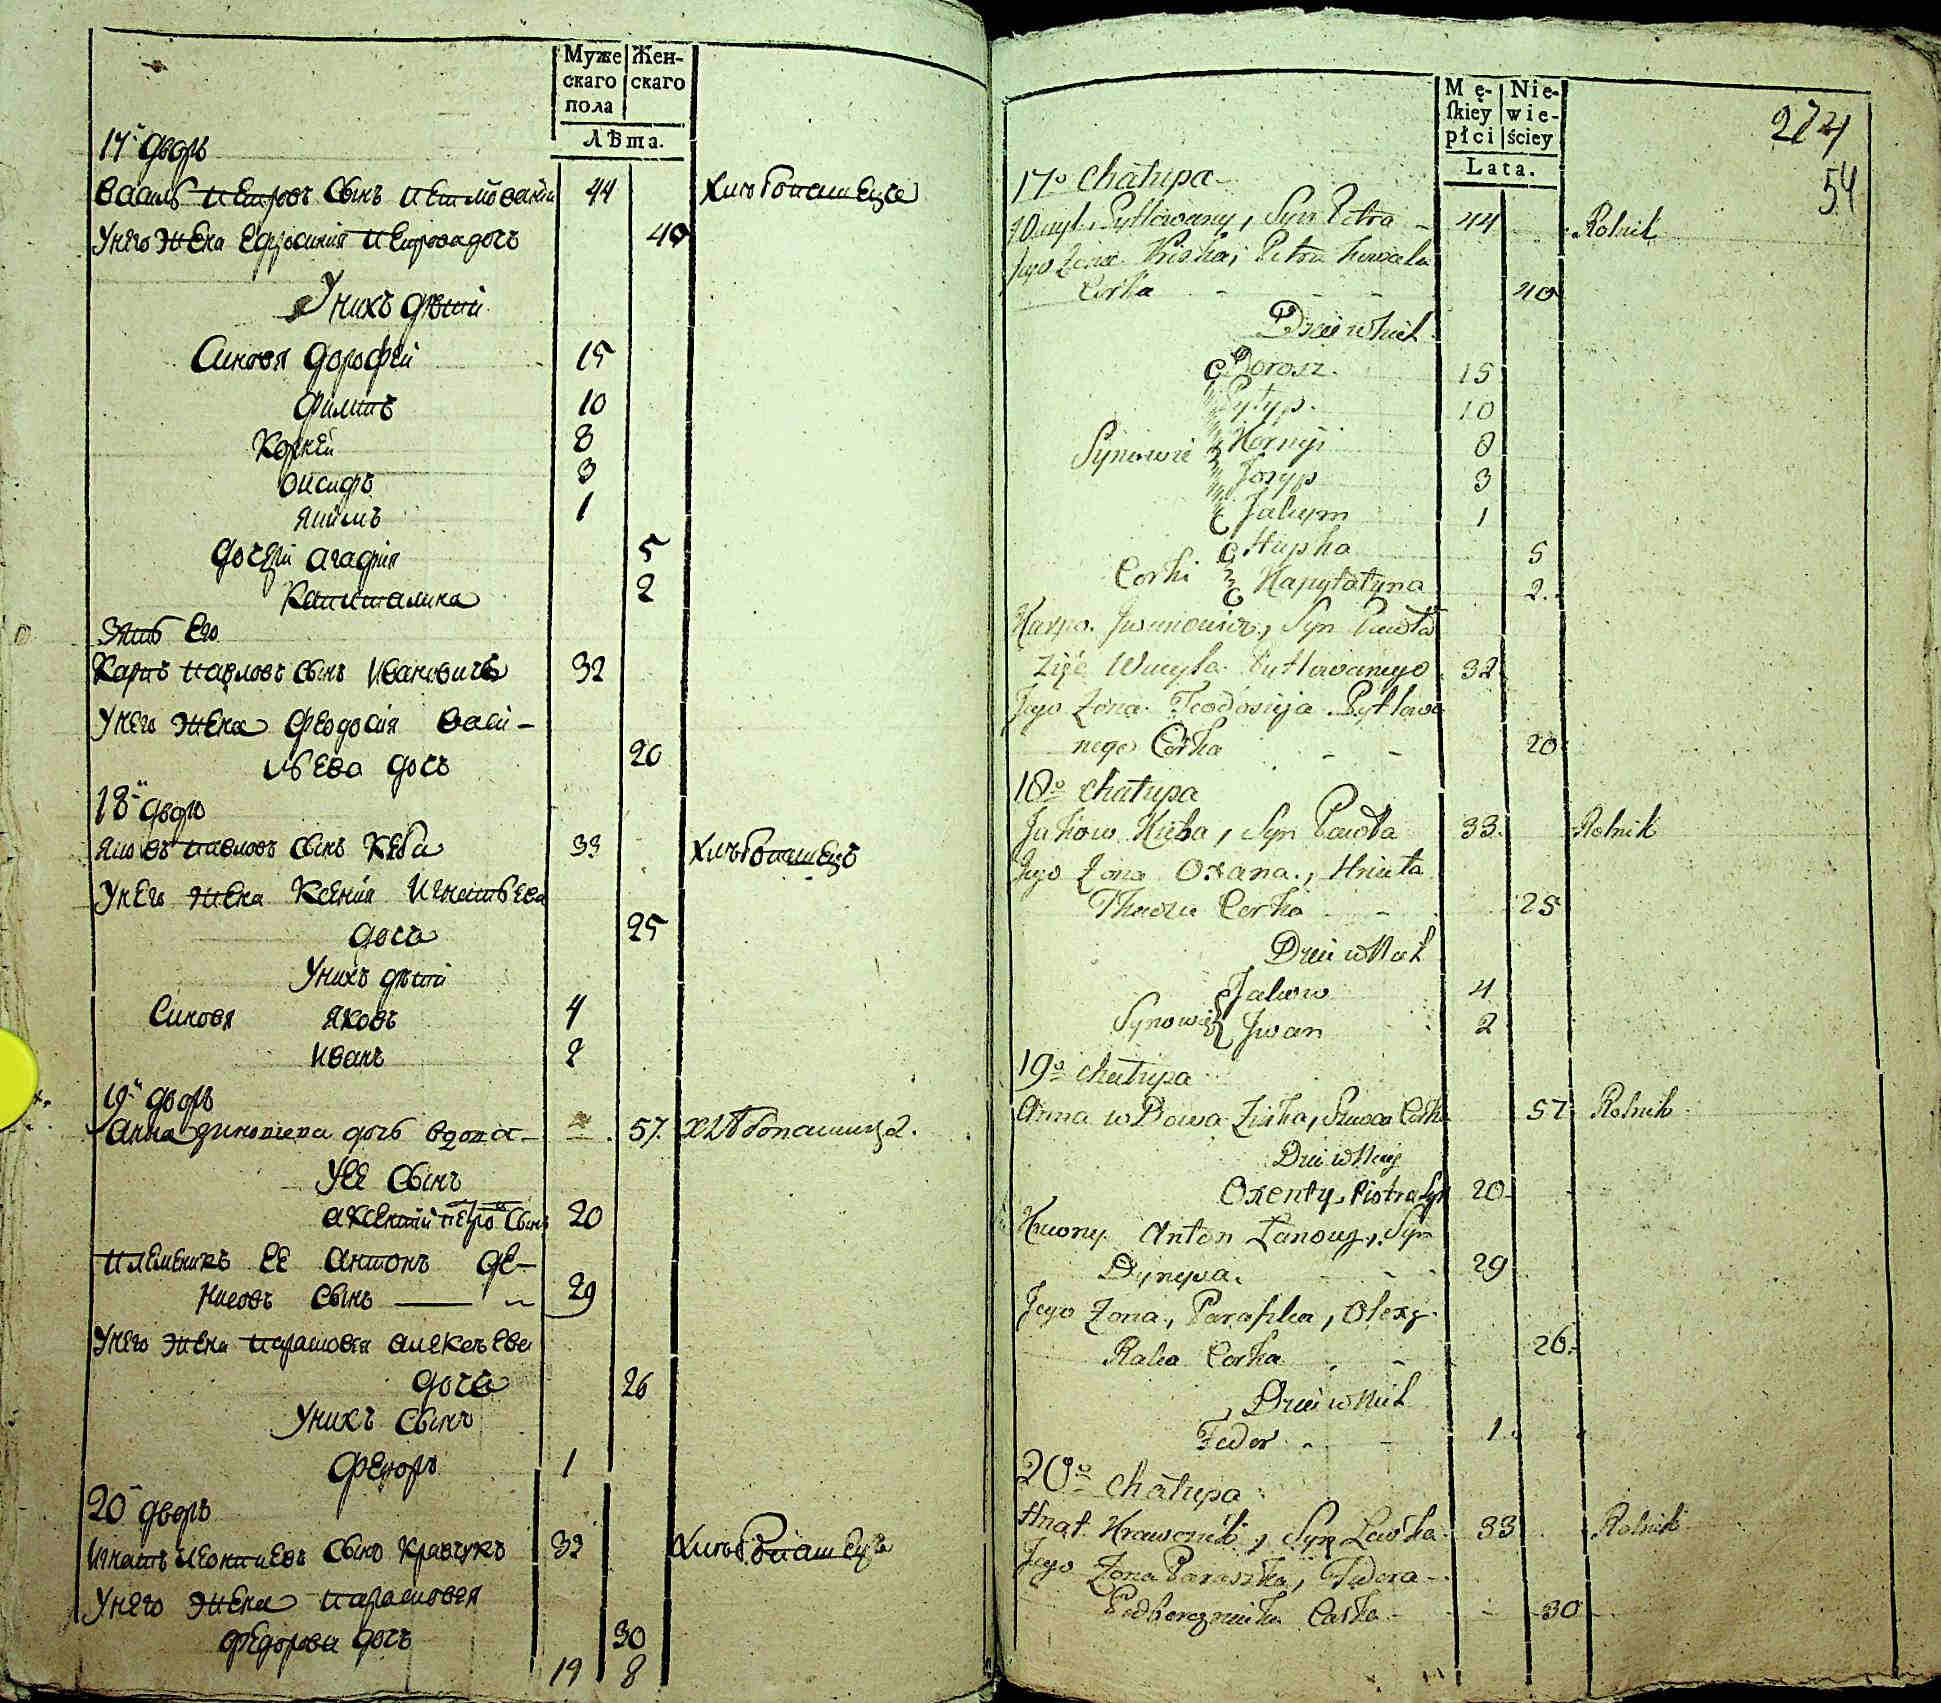 Муже
скаго
пола
Жен-
скаго
Лѣта.
17й дворъ
Василь Петровъ сынъ 44 Хлѣбопашецъ
У него жена Ефросиния Петрова дочь 40
У нихъ дѣти
Синовя Дорофей 15
Филипъ 10
Корнѣй 8
Осифъ 3
Якимъ 1
Дочери Агафия 5
Капиталина 2
Зять Его
Карпъ Павловъ сынъ Ивановичъ 32
У него жена Феодосия Васи-
льева дочь 20
18й дворъ
Яковъ Павловъ сынъ Кѣба 33 Хлѣбопашецъ
У него жена Ксения Игнатьева
дочь 25
У нихъ дѣти
Синовя Яковъ 4
Иванъ 2
19й дворъ
Анна Зиновиева дочь вдова 57. хлѣбопашица.
У ее сынъ
Аксентий Петро сынъ 20
Племеникъ ее Антонъ Де-
нисовъ сынъ 29
У него жена Парасковея Алексѣева
дочь 26
У нихъ сынъ
Федоръ 1
20й дворъ
Игнатъ Леонтиевъ сынъ Кравчукъ 32 Хлѣбопашецъ
У него жена Парасковея
Федорова дочь 30
19 8
Mę-
ſkiey
płci
Nie-
wie-
ściey
Lata.
274
54
17o Chałupa
Wasyl Pytlowany, Syn Petra 44 Rolnik
Jego Żona Petra Kowala
Corka 40
Dzieci w Nich
Dorosz. 15
Pylyp. 10
Synowie Kornyi 8
Josyp 3
Jakym 1
Corki Hapka 5
Kapytałyna 2.
Karpo Iwanowicz, Syn Pawła
Zięć Wasyla Pytlowanego 32
Jego Żona Teodosija Pytlowa
nego Corka 20
18o Chałupa
Jakow Kieba, Syn Pawła 33. Rolnik
Jego Żona Oxana, Hnata
Tkacza Corka 25
Dzieci w Nich
Jakow 4
Synowie Iwan 2
19o Chałupa
Anna wDowa Zinka, Corka 57 Rolnik
Dzieci w Niey
Oxenty Piotra Syn 20
Anton Syn
Dynysa. 29
Jego Żona, Paraska, Olexy
Corka 26.
Dzieci w Nich
Fedor 1.
20o Chałupa
Hnat Krawczuk, Syn Lewka 33 Rolnik
Jego Żona Paraszka, Fedora
Corka 30